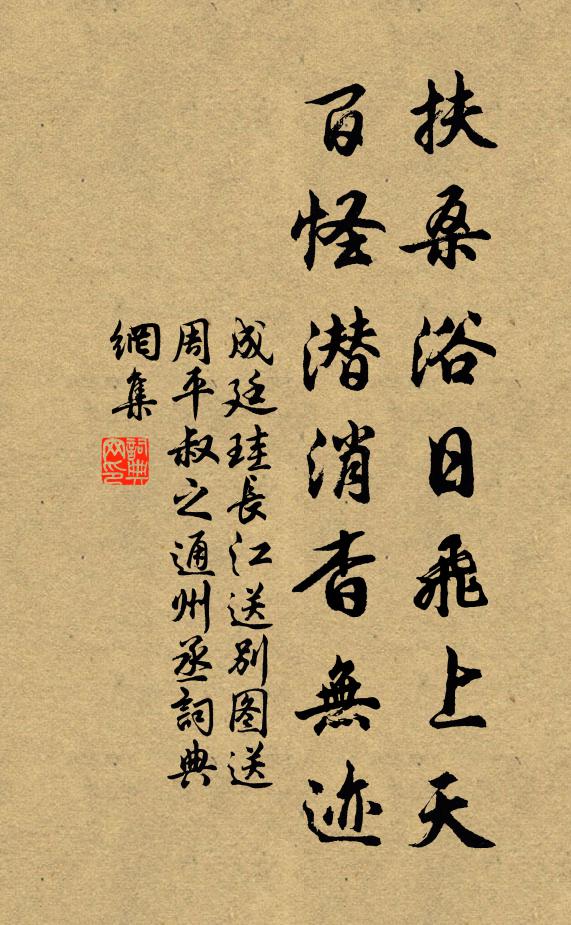 扶桑浴日飛上天
百怪潜消杳無迹
成廷珪長江送别图送
周平叔之通州丞詞典
網集
詞典
网印